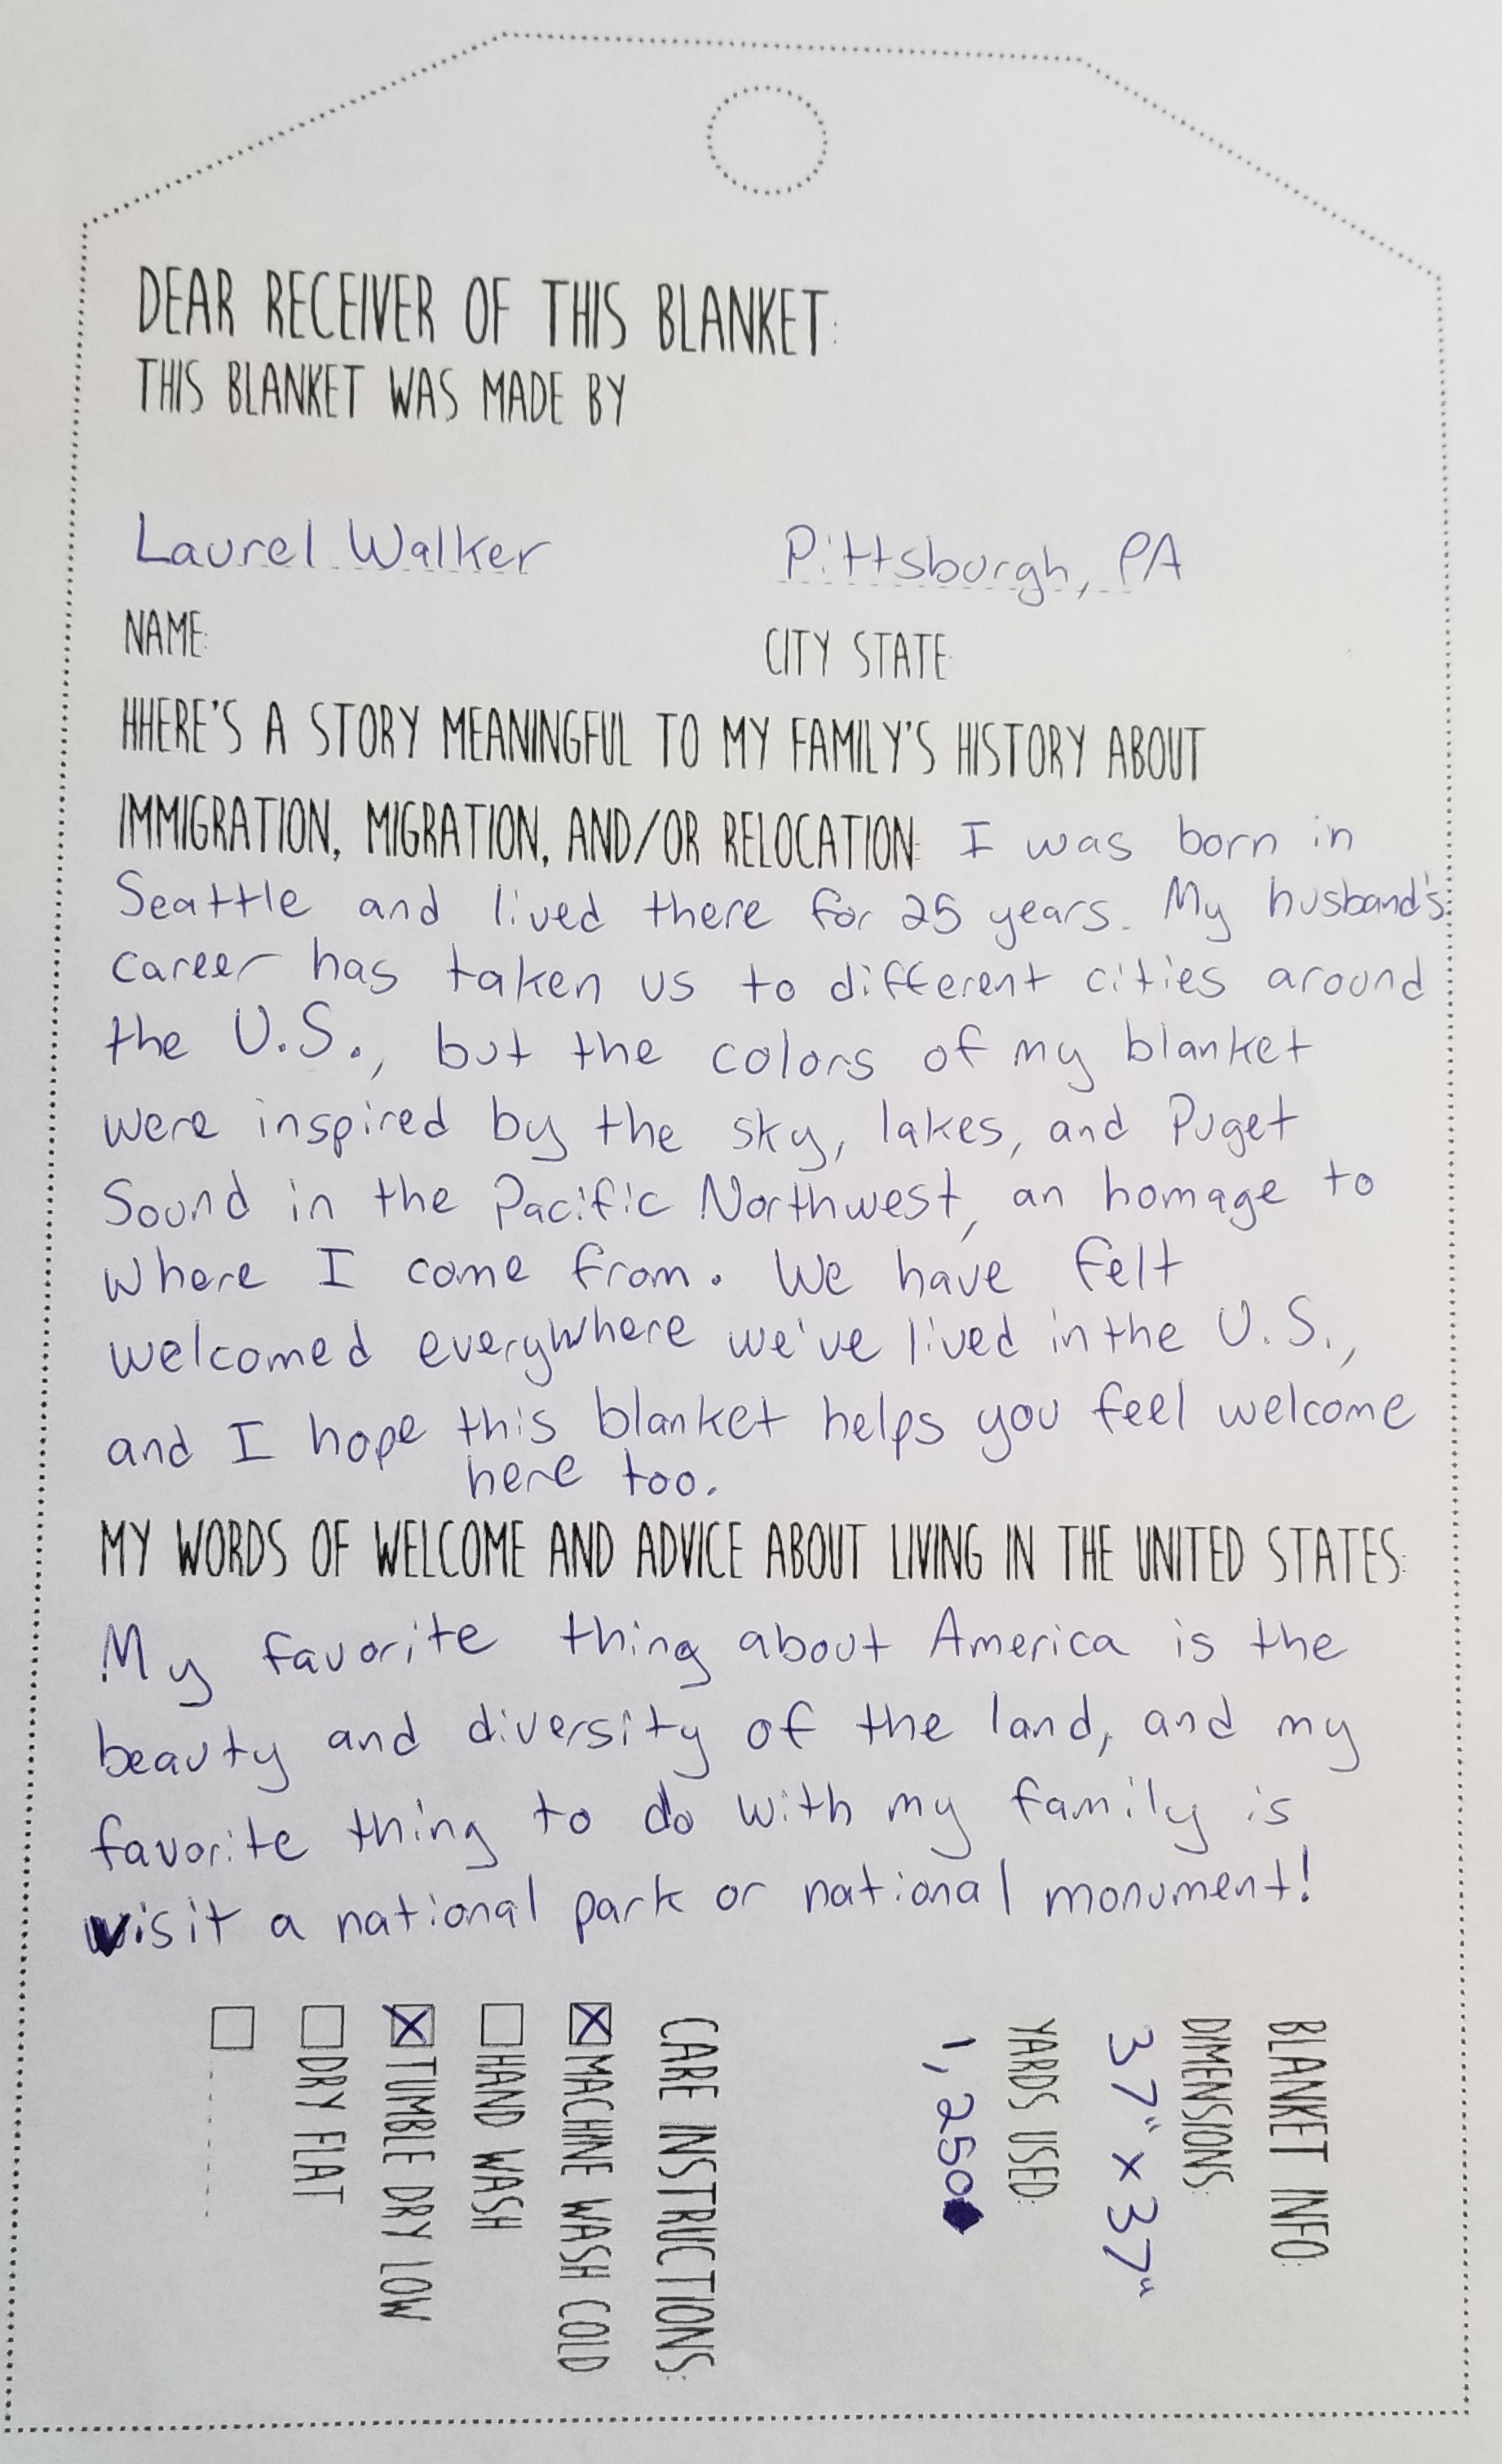 DEAR RECEIVER OF THIS BLANKET:
THIS BLANKET WAS MADE BY
Laurel Walker Pittsburgh, PA
NAME: CITY STATE:
HHERE'S A STORY MEANINGFUL TO MY FAMILY'S HISTORY ABOUT
IMMIGRATION, MIGRATION, AND/OR RELOCATION: I was born in
Seattle and lived there for 25 years. My husband's
career has taken us to different cities around
the U.S., but the colors of my blanket
were inspired by the sky, lakes, and Puget
Sound in the Pacific Northwest, an homage to
where I come from. We have felt
welcomed everywhere we've lived in the U.S.,
and I hope this blanket helps you feel welcome
here too.
MY WORDS OF WELCOME AND ADVICE ABOUT LIVING IN THE UNITED STATES:
My favorite thing about America is the
beauty and diversity of the land, and my
favorite thing to do with my family is
visit a national park or national monument!
BLANKET INFO:
DIMENSIONS:
37" x 37"
YARDS USED:
1,250
CARE INSTRUCTIONS:
MACHINE WASH COLD
HAND WASH
TUMBLE DRY LOW
DRY FLAT